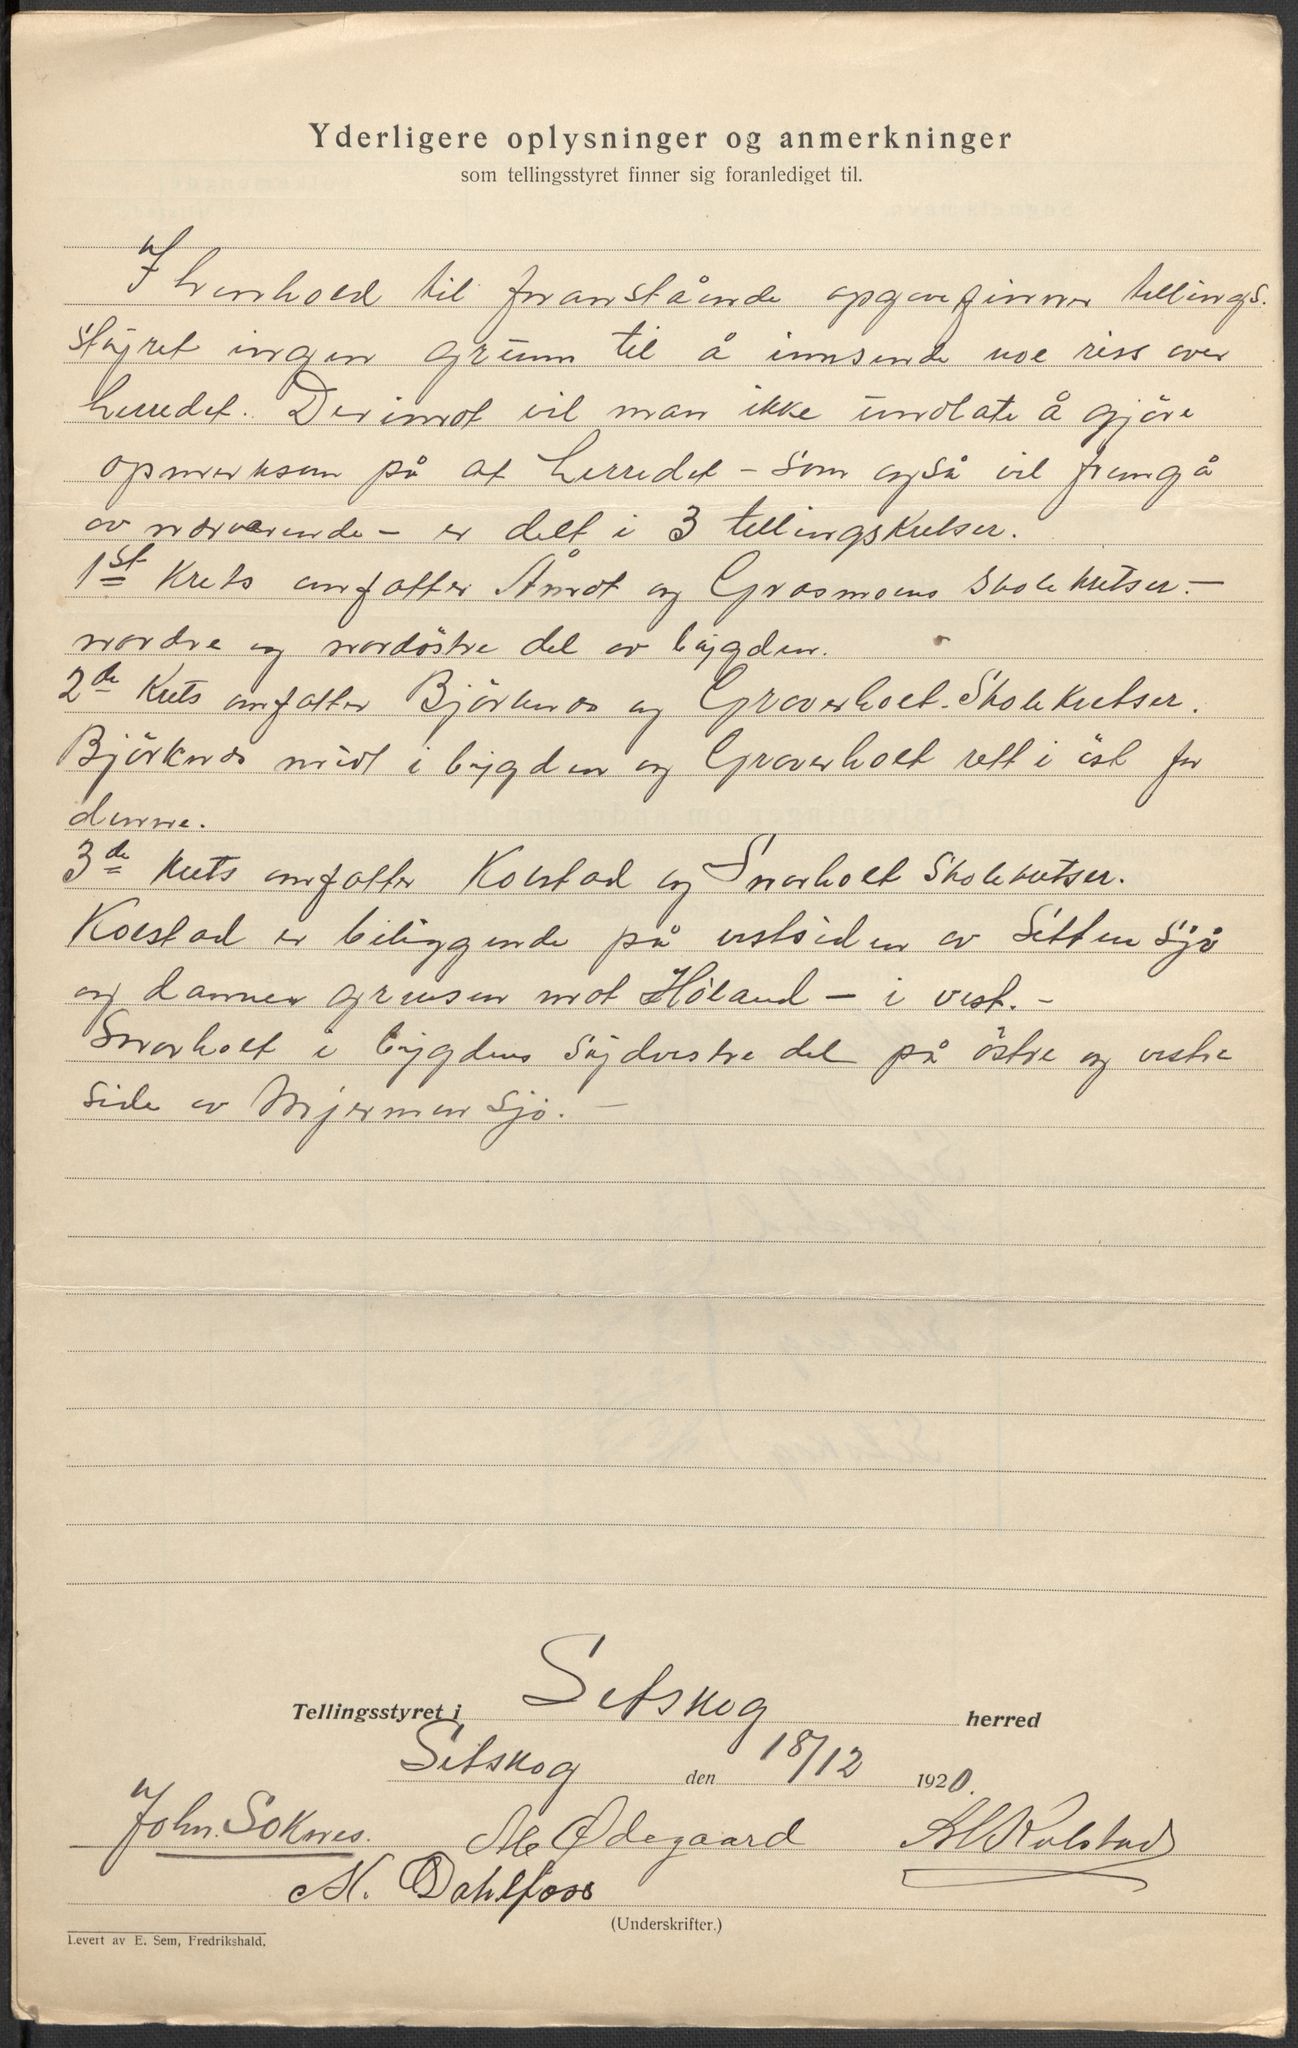 Yderligere oplysninger og anmerkninger
som tellingsstyret finner sig foranlediget til.
I henhold til foranstående opgave finner tellings-
styret ingen grunn til å innsende noe riss over
herredet. Derimot vil man ikke undlate å gjöre
opmerksom på at herredet – som også vil fremgå
av nærværende – er delt i 3 tellingskretser.
1st Krets omfatter Åmot og Grasmoens Skolekretser. –
nordre og nordöstre del av bygden.
2de Krets omfatter Björknes og Graverholt Skolekretser.
Björknes midt i bygden og Graverholt rett i öst for
denne.
3de Krets omfatter Kolstad og Snarholt Skolekretser.
Kolstad er beliggende på vestsiden av Setten Sjö
og danner grensen mot Höland – i vest. –
Snarholt i bygdens Sydvestre del på östre og vestre
Side av Mjermen Sjö. –
Tellingsstyret i Setskog herred
Setskog den 18/12 1920.
John. Soknes. M Ødegaard A Kolstad
M. Dahlfoss
(Underskrifter.)
Levert av E. Sem, Fredrikshald.